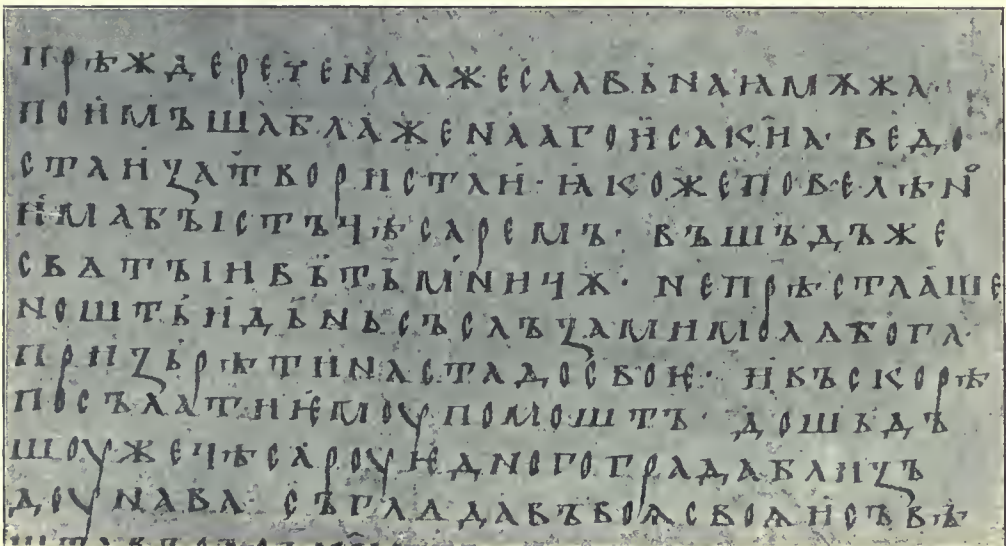 прѣждереченааже славьнаꙗ мѫжа·
поимъша блаженааго исакиꙗ· ведо
ста и затвориста и· ꙗкоже повелѣно
има бъıстъ цѣсаремъ· въшъдъ же
свѧтъıи въ тьмьницѫ· не прѣстааше
ношть и дьнь съ слъзами молѧ бога·
призьрѣти на стадо своѥ· и въскорѣ
посълати ѥмоу помошть· дошьдъ
шоу же цѣсароу ѥдного града близъ
доунава· съглѧдавъ боѩ своѩ и съвѣ